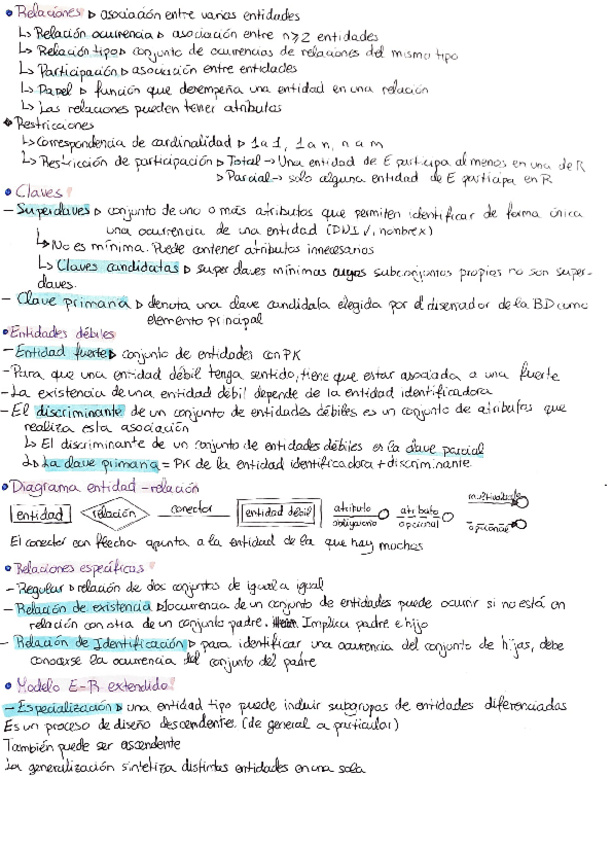 • Relaciones ▷ asociación entre varias entidades
↳ Relación ocurrencia ▷ asociación entre n≥2 entidades
↳ Relación tipo ▷ conjunto de ocurrencias de relaciones del mismo tipo
↳ Participación ▷ asociación entre entidades
↳ Papel ▷ función que desempeña una entidad en una relación
↳ Las relaciones pueden tener atributos
• Restricciones
↳ Correspondencia de cardinalidad ▷ 1 a 1, 1 a n, n a m
↳ Restricción de participación ▷ Total → Una entidad de E participa al menos en una de R
▷ Parcial → solo alguna entidad de E participa en R
• Claves
– Superclaves ▷ conjunto de uno o más atributos que permiten identificar de forma única
una ocurrencia de una entidad (DNI ✓, nombre x)
↳ No es mínima. Puede contener atributos innecesarios
↳ Claves candidatas ▷ super claves mínimas cuyos subconjuntos propios no son super-
claves.
– Clave primaria ▷ denota una clave candidata elegida por el diseñador de la BD como
elemento principal
• Entidades débiles
– Entidad fuerte ▷ conjunto de entidades con PK
– Para que una entidad débil tenga sentido, tiene que estar asociada a una fuerte
– La existencia de una entidad débil depende de la entidad identificadora
– El discriminante de un conjunto de entidades débiles es un conjunto de atributos que
realiza esta asociación
↳ El discriminante de un conjunto de entidades débiles es la clave parcial
↳ La clave primaria = PK de la entidad identificadora + discriminante
• Diagrama entidad – relación
entidad relación conector entidad débil atributo obligatorio atributo opcional multivaluado opcional
El conector con flecha apunta a la entidad de la que hay muchos
• Relaciones específicas
– Regular ▷ relación de dos conjuntos de igual a igual
– Relación de existencia ▷ ocurrencia de un conjunto de entidades puede ocurrir si no está en
relación con otra de un conjunto padre. Implica padre e hijo
– Relación de Identificación ▷ para identificar una ocurrencia del conjunto de hijas, debe
conocerse la ocurrencia del conjunto del padre
• Modelo E-R extendido
– Especialización ▷ una entidad tipo puede incluir subgrupos de entidades diferenciadas
Es un proceso de diseño descendente. (de general a particular)
También puede ser ascendente
La generalización sintetiza distintas entidades en una sola